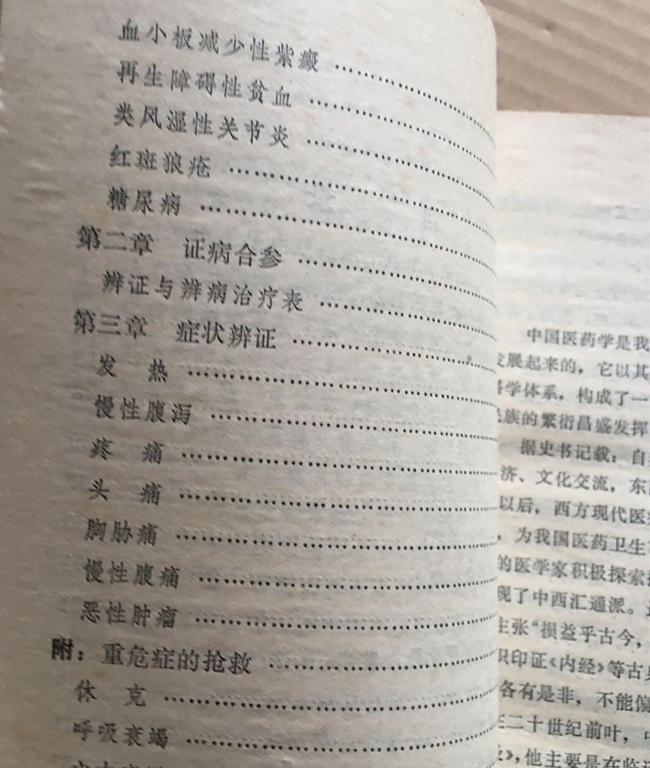 血小板减少性紫癜 ……………
再生障碍性贫血 ……………
类风湿性关节炎 ……………
红斑狼疮 ……………
糖尿病 ……………
第二章 证病合参 ……………
辨证与辨病治疗表 ……………
第三章 症状辨证 ……………
发 热 ……………
慢性腹泻 ……………
疼 痛 ……………
头 痛 ……………
胸胁痛 ……………
慢性腹痛 ……………
恶性肿瘤 ……………
附：重危症的抢救 ……………
休 克 ……………
呼吸衰竭 ……………
中国医药学是我
发展起来的，它以其
科学体系，构成了一
民族的繁衍昌盛发挥
据史书记载：自
济、文化交流，东
以后，西方现代医
，为我国医药卫生
的医学家积极探索
现了中西汇通派。
主张“损益乎古今，
识印证《内经》等古
各有是非，不能偏
二十世纪前叶，
》，他主要是在临